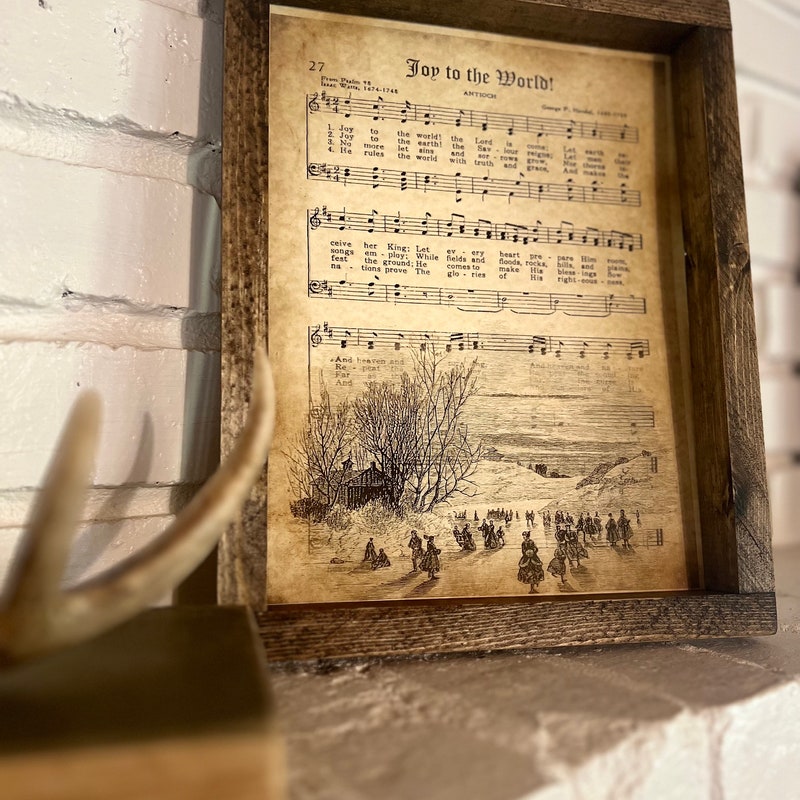 27
Joy to the World!
From Psalm 98
Isaac Watts, 1674-1748
ANTIOCH
George F. Handel, 1685-1759
1. Joy to the world! the Lord is come; Let earth re-
2. Joy to the earth! the Sav - iour reigns; Let men their
3. No more let sins and sor - rows grow, Nor thorns in-
4. He rules the world with truth and grace, And makes the
ceive her King; Let ev - ery heart pre - pare Him room,
songs em - ploy; While fields and floods, rocks, hills, and plains,
fest the ground; He comes to make His bless - ings flow
na - tions prove The glo - ries of His right - eous - ness,
And heaven and And heaven and na - ture
Re - peat the
Far as
And